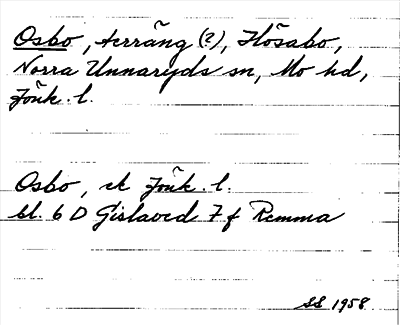 Osbo, terräng (?), Flösabo,
Norra Unnaryds sn, Mo hd,
Jönk. l.
Osbo, ek Jönk. l.
bl. 6 D Gislaved 7 f Remma
SS 1958